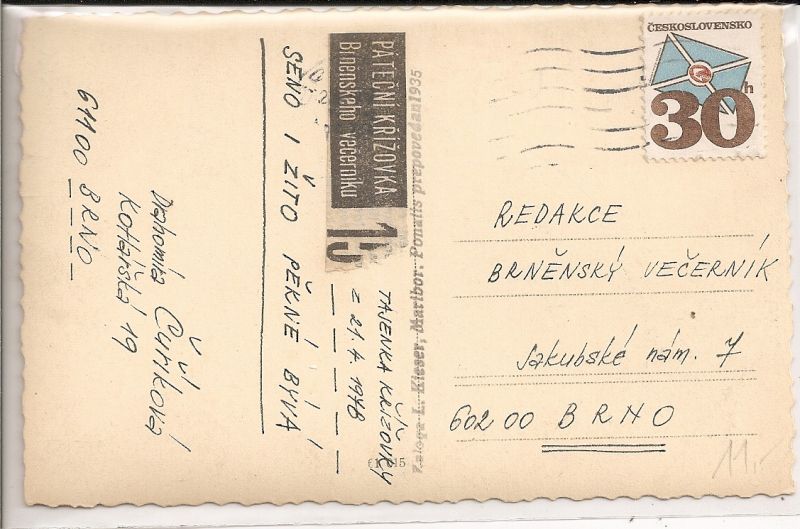 ČESKOSLOVENSKO
30h
REDAKCE
BRNĚNSKÝ VEČERNÍK
Jakubské nám. 7
602 00 BRNO
11,-
Založga L. Kieser, Maribor. Ponatis prepovedan 1935
PÁTEČNÍ KŘÍŽOVKA
Brněnského večerníku
15
TAJENKA KŘÍŽOVKY
z 21.4 1978
SENO I ŽITO PĚKNE BÝVÁ
Drahomíra Čuříková
Kotlářská 19
611 00 BRNO